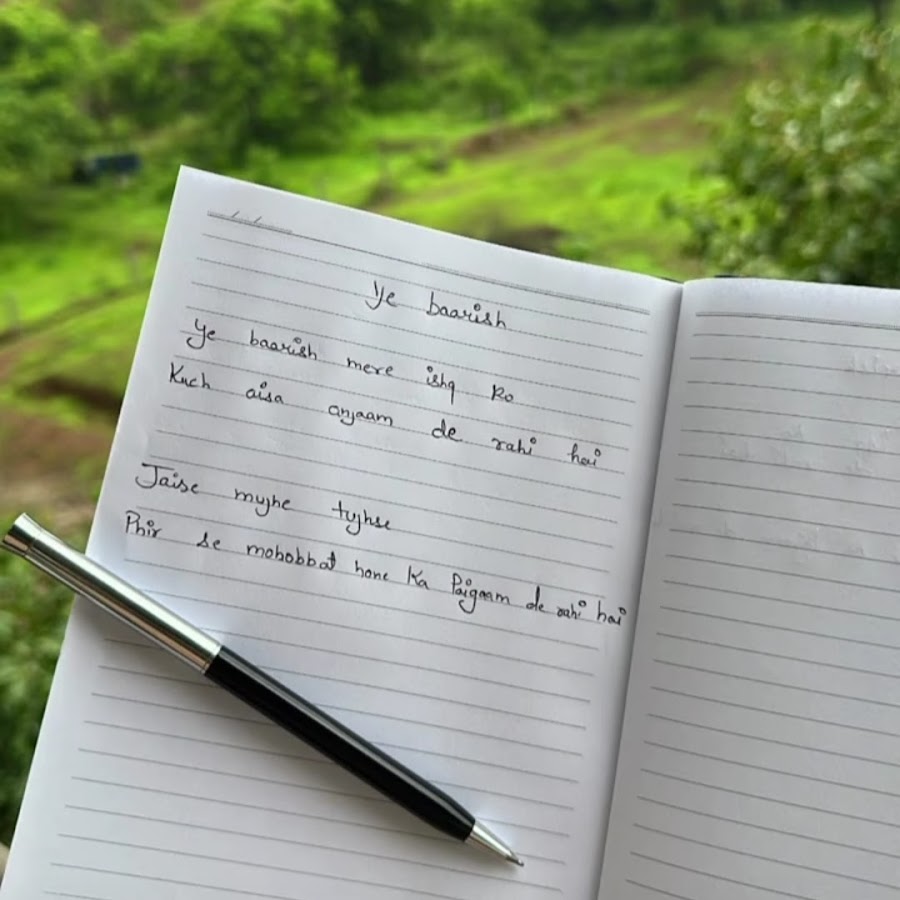 Ye baarish
Ye baarish mere ishq ko
Kuch aisa anjaam de rahi hai
Jaise mujhe tujhse
Phir se mohobbat hone ka Paigaam de rahi hai